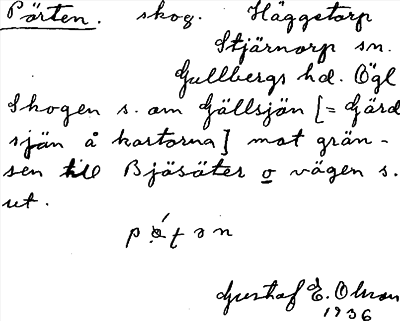 Pörten. skog. Häggetorp
Stjärnorp sn.
Gullbergs hd. Ögl
Skogen s. om Gällsjön [= Gärd
sjön å kartorna] mot grän-
sen till Bjäsäter o vägen s.
ut.
Gustaf E. Olson
1936